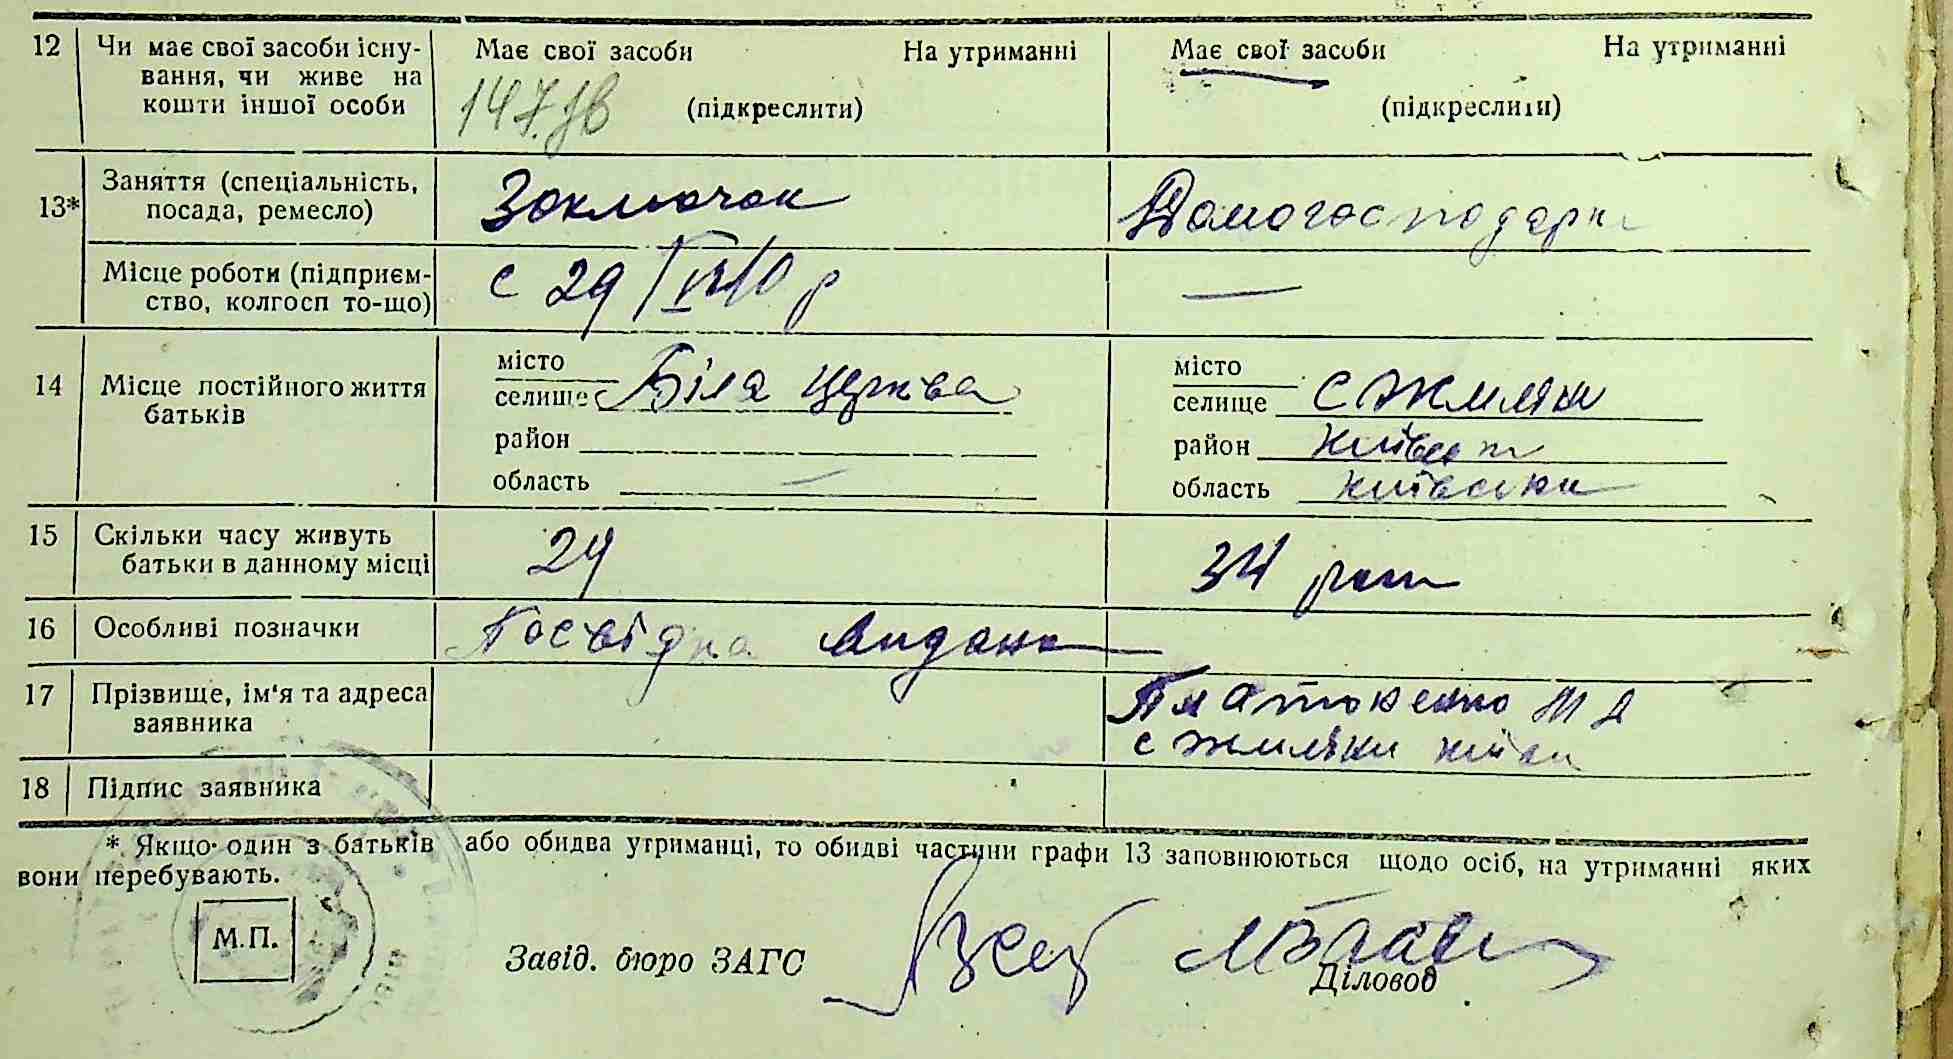 12 Чи має свої засоби існу- Має свої засоби На утриманні Має свої засоби На утриманні
вання, чи живе на
кошти іншої особи 147 (підкреслити) (підкреслити)
13* Заняття (спеціальність, посада, ремесло) Заключок Домогосподарк
Місце роботи (підприєм-
ство, колгосп то-що) с 29/VII 40 р —
14 Місце постійного життя батьків
місто селище Біла Церква місто селище с Жиляни
район район Київськ
область — область Київська
15 Скільки часу живуть
батьки в данному місці 24 34 роки
16 Особливі позначки Посвідка видана
17 Прізвище, ім'я та адреса Платоненко М Д
заявника с Жиляни Київ
18 Підпис заявника
* Якщо один з батьків або обидва утриманці, то обидві частини графи 13 заповнюються щодо осіб, на утриманні яких
вони перебувають.
М.П. Завід. бюро ЗАГС Діловод